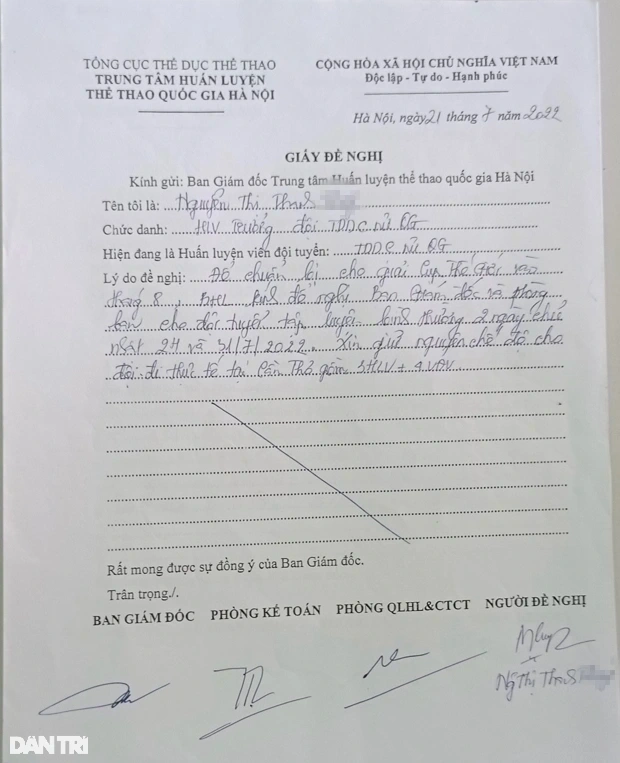 TỔNG CỤC THỂ DỤC THỂ THAO
TRUNG TÂM HUẤN LUYỆN
THỂ THAO QUỐC GIA HÀ NỘI
CỘNG HÒA XÃ HỘI CHỦ NGHĨA VIỆT NAM
Độc lập - Tự do - Hạnh phúc
Hà Nội, ngày 21 tháng 7 năm 2022
GIẤY ĐỀ NGHỊ
Kính gửi: Ban Giám đốc Trung tâm Huấn luyện thể thao quốc gia Hà Nội
Tên tôi là: Nguyễn Thị Thanh
Chức danh: HLV trưởng đội TDDC nữ QG
Hiện đang là Huấn luyện viên đội tuyển: TDDC nữ QG
Lý do đề nghị: Để chuẩn bị cho giải Cúp Thế Giới vào
tháng 8, BHL kính đề nghị Ban Giám đốc và phòng
ban cho đội tuyển tập luyện bình thường 2 ngày chủ
nhật 24 và 31/7/2022. Xin giữ nguyên chế độ cho
đội đi thực tế tại Cần Thơ gồm 3HLV + 9 VĐV
Rất mong được sự đồng ý của Ban Giám đốc.
Trân trọng./.
BAN GIÁM ĐỐC PHÒNG KẾ TOÁN PHÒNG QLHL&CTCT NGƯỜI ĐỀ NGHỊ
Ng Thị Thanh
DÂN TRÍ